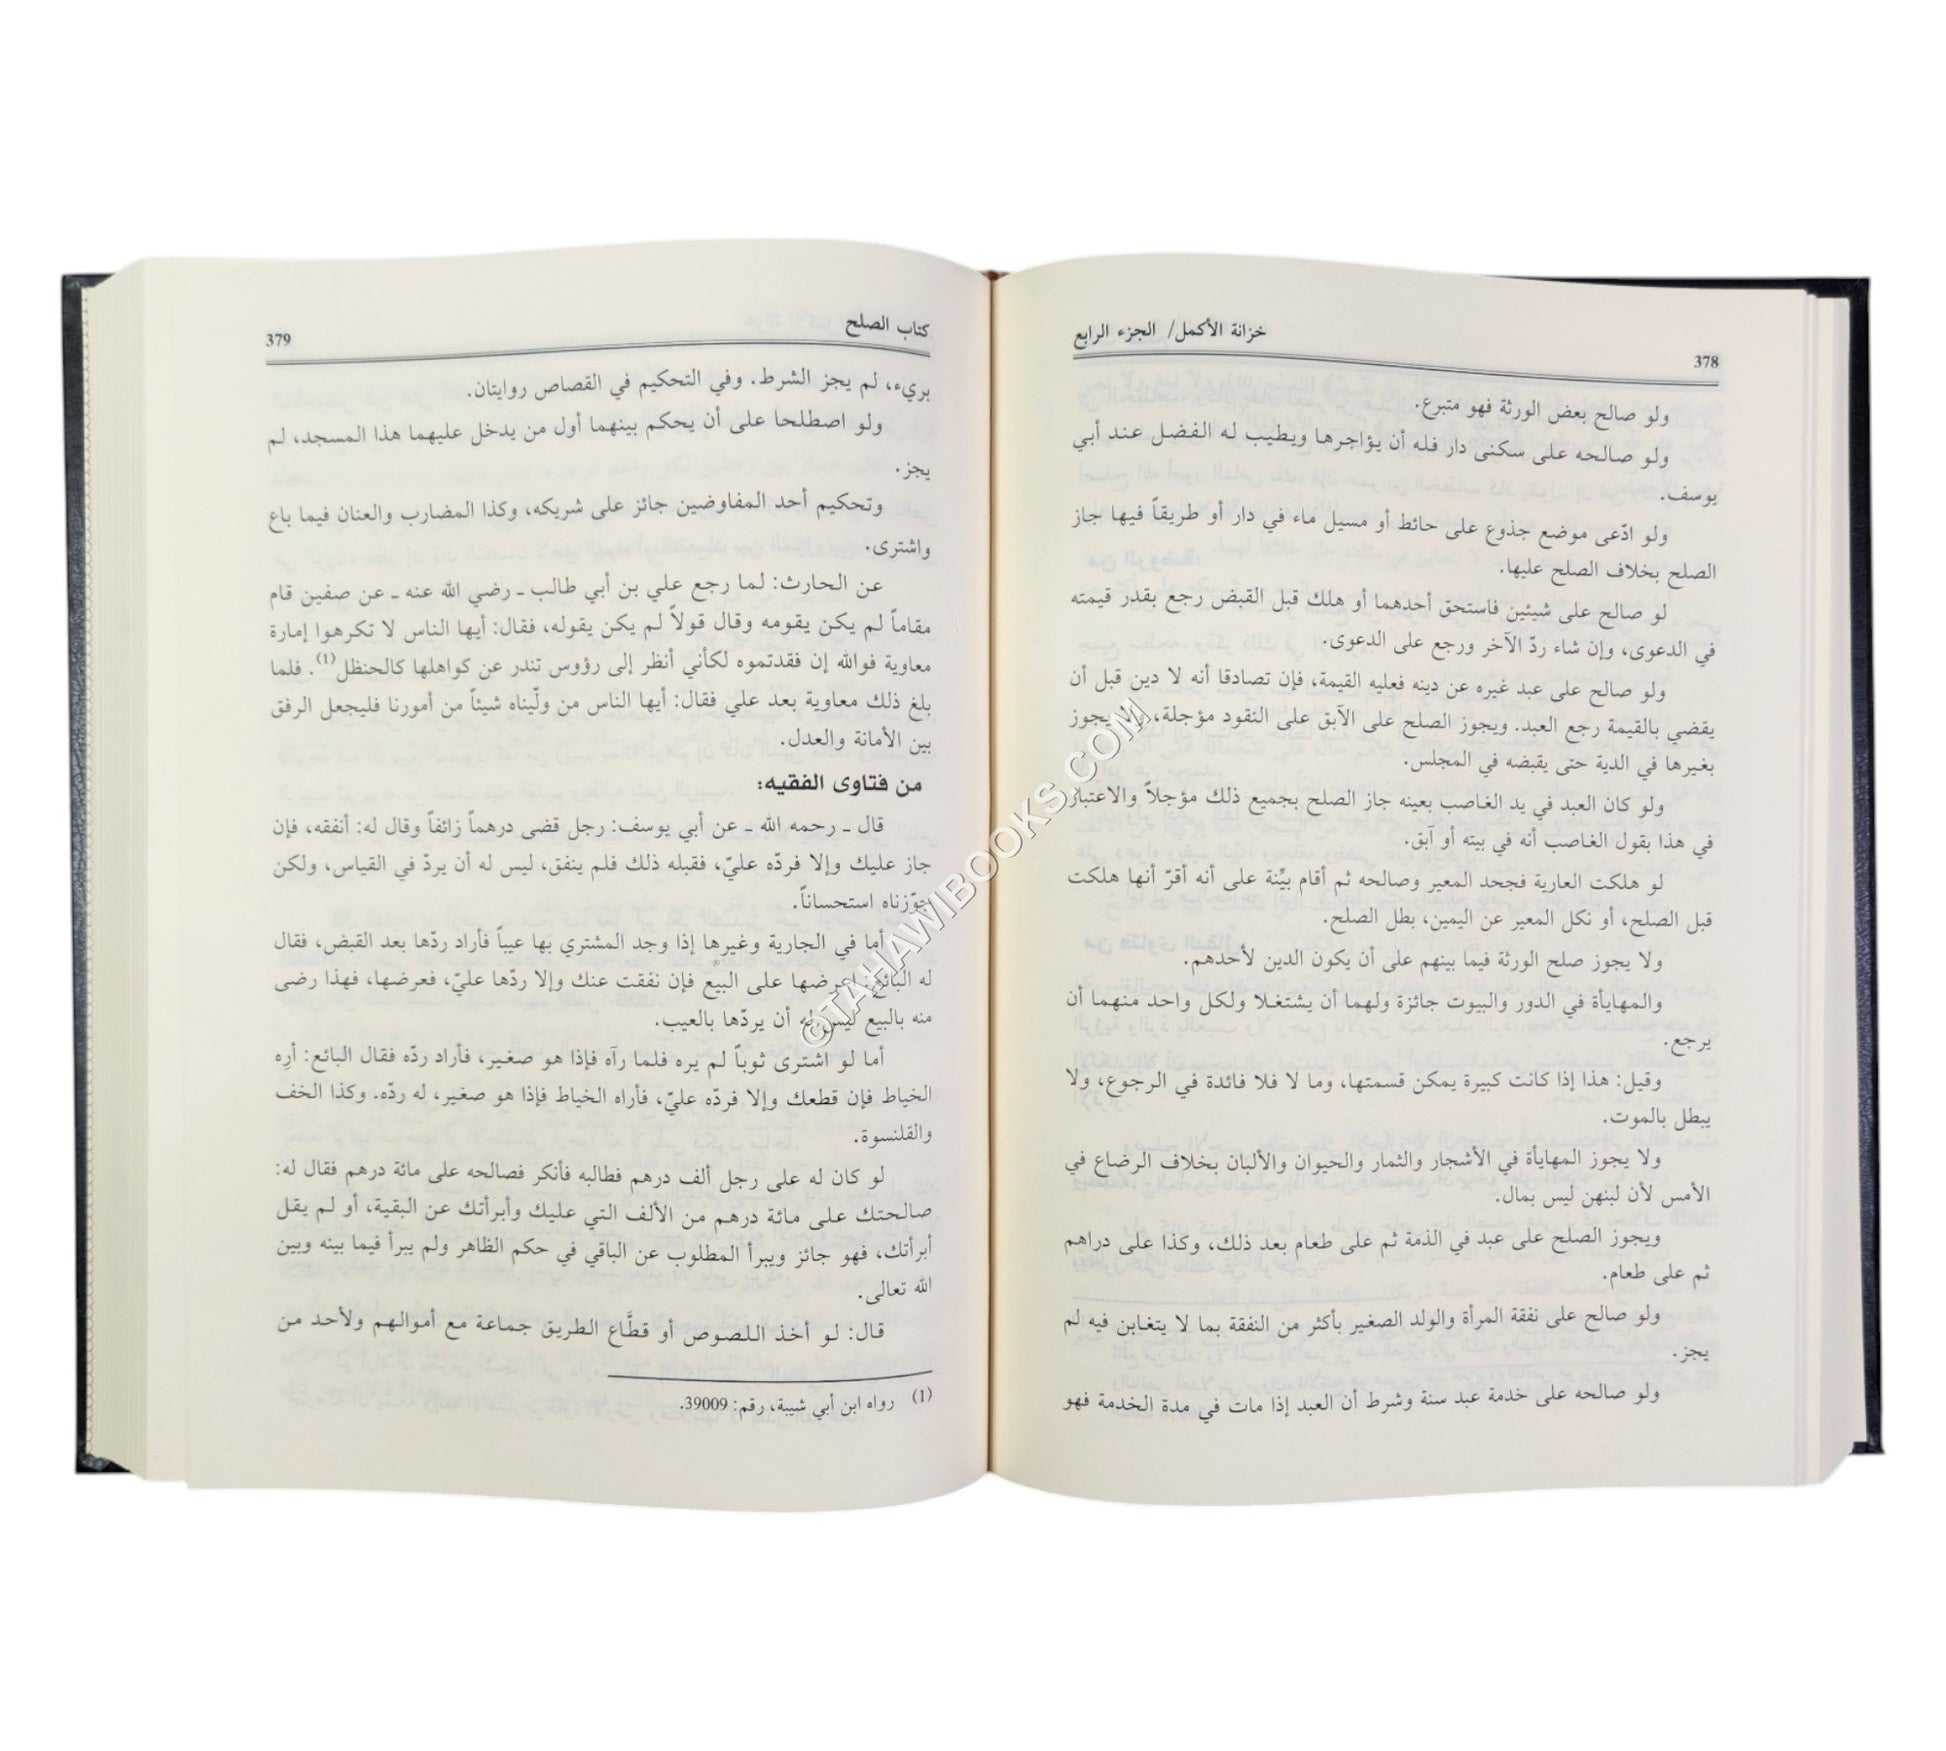 خزانة الأكمل/ الجزء الرابع
378
ولو صالح بعض الورثة فهو متبرع.
ولو صالحه على سكنى دار فله أن يؤاجرها ويطيب له الفضل عند أبي
يوسف.
ولو ادّعى موضع جذوع على حائط أو مسيل ماء في دار أو طريقاً فيها جاز
الصلح بخلاف الصلح عليها.
لو صالح على شيئين فاستحق أحدهما أو هلك قبل القبض رجع بقدر قيمته
في الدعوى، وإن شاء ردّ الآخر ورجع على الدعوى.
ولو صالح على عبد غيره عن دينه فعليه القيمة، فإن تصادقا أنه لا دين قبل أن
يقضي بالقيمة رجع العبد. ويجوز الصلح على الآبق على النقود مؤجلة، ولا يجوز
بغيرها في الدية حتى يقبضه في المجلس.
ولو كان العبد في يد الغاصب بعينه جاز الصلح بجميع ذلك مؤجلاً والاعتبار
في هذا بقول الغاصب أنه في بيته أو آبق.
لو هلكت العارية فجحد المعير وصالحه ثم أقام بيّنة على أنه أقرّ أنها هلكت
قبل الصلح، أو نكل المعير عن اليمين، بطل الصلح.
ولا يجوز صلح الورثة فيما بينهم على أن يكون الدين لأحدهم.
والمهايأة في الدور والبيوت جائزة ولهما أن يشتغلا ولكل واحد منهما أن
يرجع.
وقيل: هذا إذا كانت كبيرة يمكن قسمتها، وما لا فلا فائدة في الرجوع، ولا
يبطل بالموت.
ولا يجوز المهايأة في الأشجار والثمار والحيوان والألبان بخلاف الرضاع في
الأمس لأن لبنهن ليس بمال.
ويجوز الصلح على عبد في الذمة ثم على طعام بعد ذلك، وكذا على دراهم
ثم على طعام.
ولو صالح على نفقة المرأة والولد الصغير بأكثر من النفقة بما لا يتغابن فيه لم
يجز.
ولو صالحه على خدمة عبد سنة وشرط أن العبد إذا مات في مدة الخدمة فهو
كتاب الصلح
379
بريء، لم يجز الشرط. وفي التحكيم في القصاص روايتان.
ولو اصطلحا على أن يحكم بينهما أول من يدخل عليهما هذا المسجد، لم
يجز.
وتحكيم أحد المفاوضين جائز على شريكه، وكذا المضارب والعنان فيما باع
واشترى.
عن الحارث: لما رجع علي بن أبي طالب ـ رضي الله عنه ـ عن صفين قام
مقاماً لم يكن يقومه وقال قولاً لم يكن يقوله، فقال: أيها الناس لا تكرهوا إمارة
معاوية فوالله إن فقدتموه لكأني أنظر إلى رؤوس تندر عن كواهلها كالحنظل(1). فلما
بلغ ذلك معاوية بعد علي فقال: أيها الناس من ولّيناه شيئاً من أمورنا فليجعل الرفق
بين الأمانة والعدل.
من فتاوى الفقيه:
قال ـ رحمه الله ـ عن أبي يوسف: رجل قضى درهماً زائفاً وقال له: أنفقه، فإن
جاز عليك وإلا فردّه عليّ، فقبله ذلك فلم ينفق، ليس له أن يردّ في القياس، ولكن
جوّزناه استحساناً.
أما في الجارية وغيرها إذا وجد المشتري بها عيباً فأراد ردّها بعد القبض، فقال
له البائع: اعرضها على البيع فإن نفقت عنك وإلا ردّها عليّ، فعرضها، فهذا رضى
منه بالبيع ليس له أن يردّها بالعيب.
أما لو اشترى ثوباً لم يره فلما رآه فإذا هو صغير، فأراد ردّه فقال البائع: أرِه
الخياط فإن قطعك وإلا فردّه عليّ، فأراه الخياط فإذا هو صغير، له ردّه. وكذا الخف
والقلنسوة.
لو كان له على رجل ألف درهم فطالبه فأنكر فصالحه على مائة درهم فقال له:
صالحتك على مائة درهم من الألف التي عليك وأبرأتك عن البقية، أو لم يقل
أبرأتك، فهو جائز ويبرأ المطلوب عن الباقي في حكم الظاهر ولم يبرأ فيما بينه وبين
الله تعالى.
قال: لو أخذ اللصوص أو قطَّاع الطريق جماعة مع أموالهم ولأحد من
(1) رواه ابن أبي شيبة، رقم: 39009.
©TAHAWIBOOKS.COM